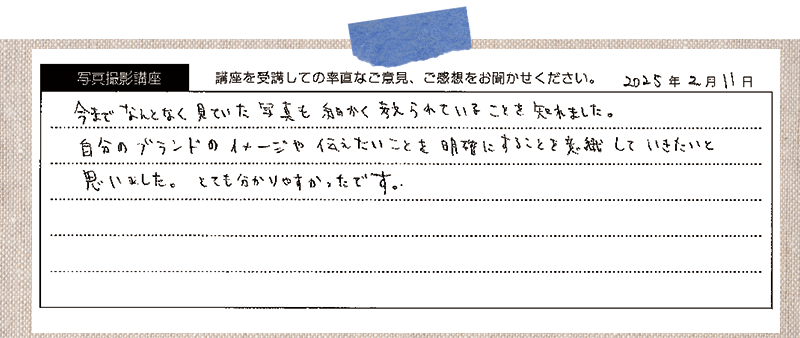 写真撮影講座 講座を受講しての率直なご意見、ご感想をお聞かせください。 2025年2月11日
今までなんとなく見ていた写真も細かく考えられていることを知れました。
自分のブランドのイメージや伝えたいことを明確にすることを意識していきたいと
思いました。とても分かりやすかったです。